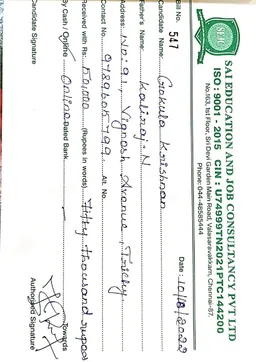 SAI EDUCATION AND JOB CONSULTANCY PVT LTD
ISO : 9001 - 2015 CIN : U74999TN2021PTC144200
No.163, Ist Floor, Sri Devi Garden Main Road, Valasaravakkam, Chennai-87.
Phone: 044-48585444
Bill No. 547 Date: 10/8/2022
Candidate Name: Gokula Krishnan
Father's Name: Kaliraj. N
Address: No: 91, Vignesh Avenue, Trichy
Contact No. Alt. No.
Received with Rs: 50,000 (Rupees in words) Fifty thousand rupees
By Cash / Online Online Dated Bank Towards
Candidate Signature Authorised Signature